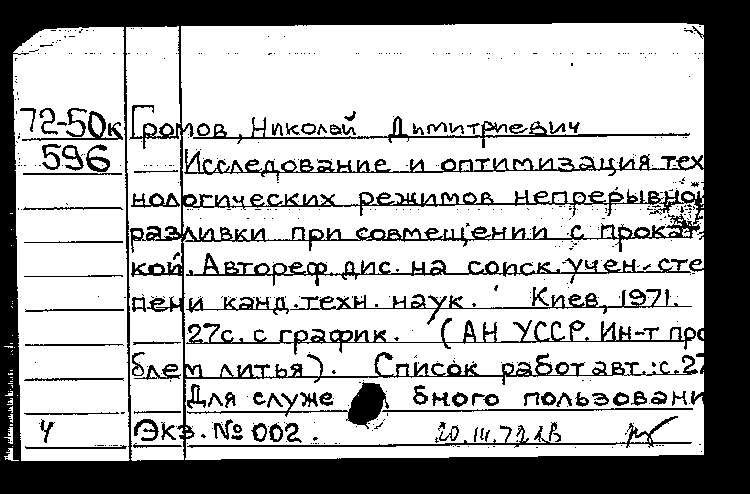 72-50к Громов, Николай Димитриевич
596 Исследование и оптимизация тех
нологических режимов непрерывной
разливки при совмещении с прокат
кой. Автореф. дис. на соиск. учен. сте
пени канд. техн. наук. Киев, 1971.
27с. с график. (АН УССР. Ин-т про
блем литья). Список работ авт.: с. 27
Для служебного пользовани
Ч Экз. № 002. 20.III.72